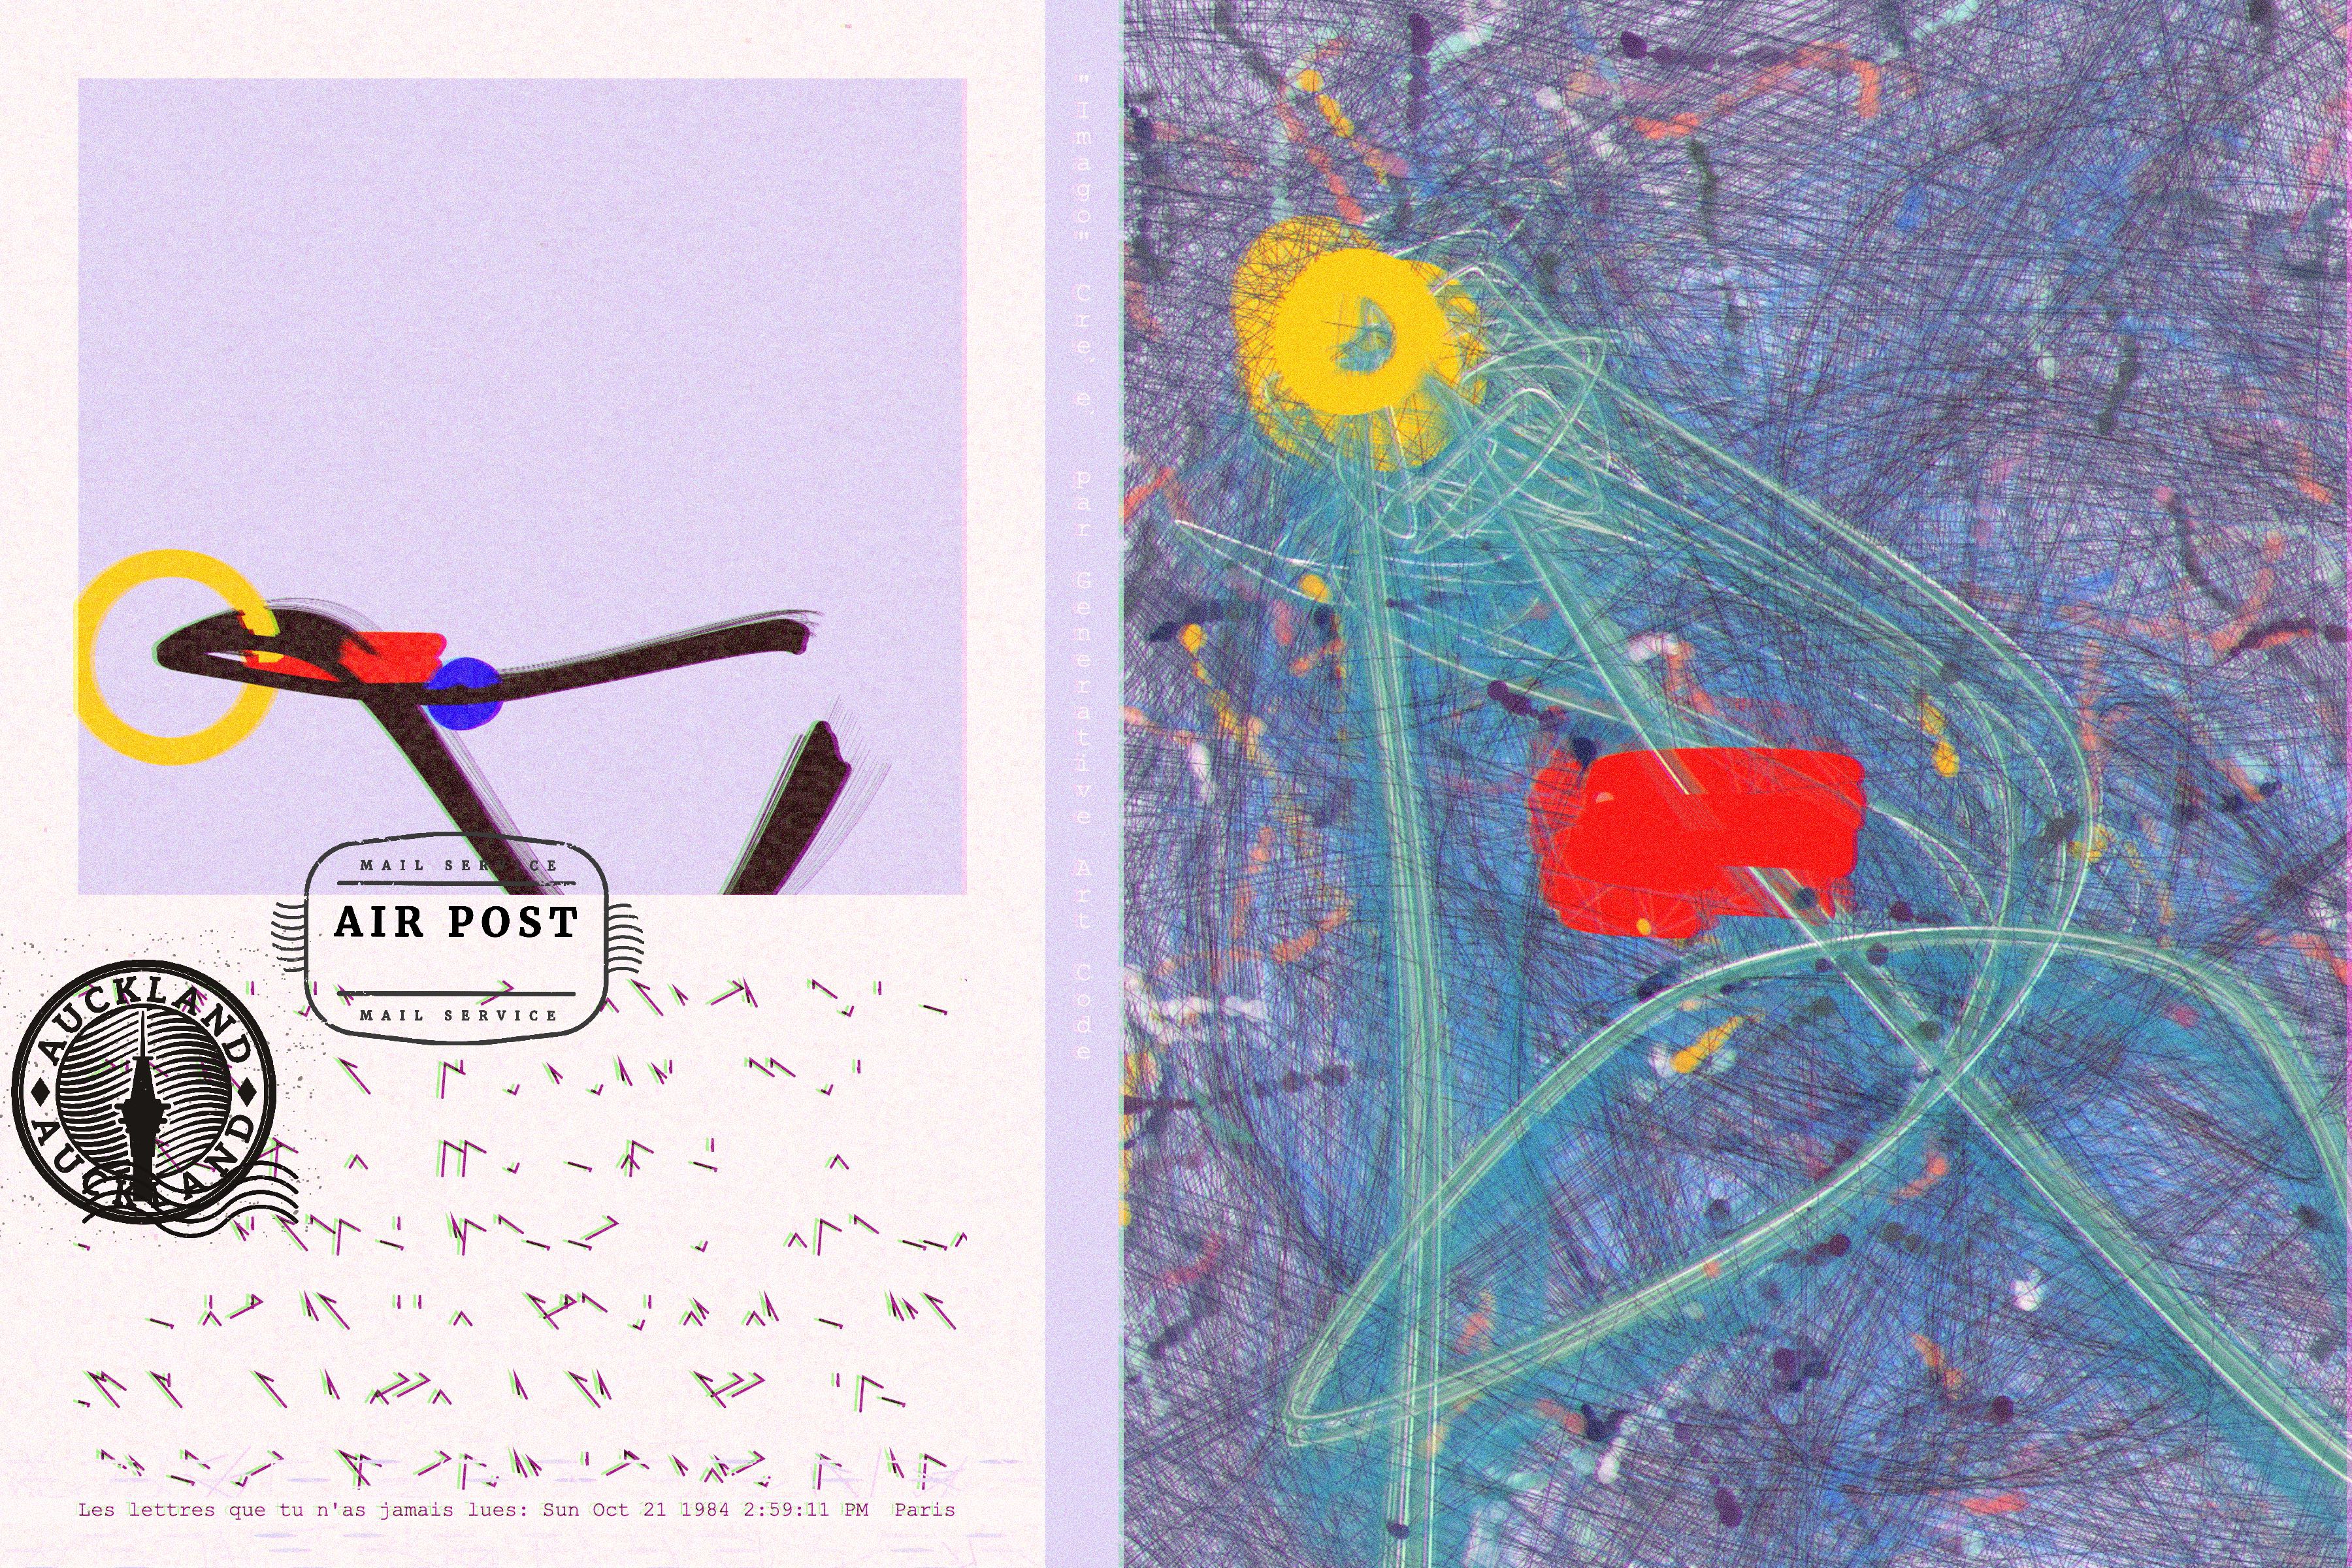 MAIL SERVICE
AIR POST
MAIL SERVICE
AUCKLAND
AUCKLAND
Les lettres que tu n'as jamais lues: Sun Oct 21 1984 2:59:11 PM Paris
"Imago" Créé par Generative Art Code